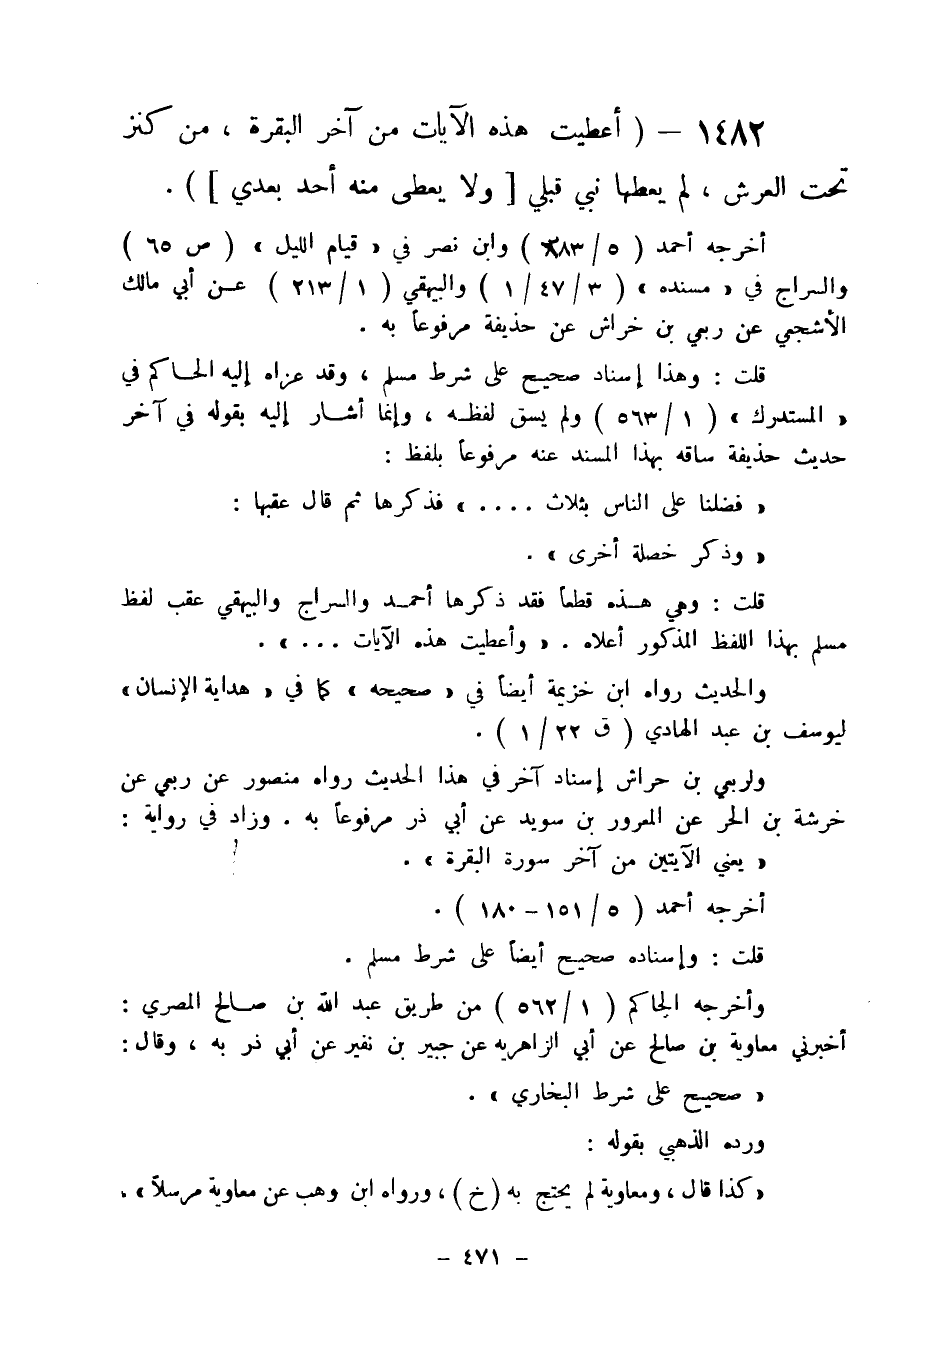 ١٤٨٢ – ( أعطيت هذه الآيات من آخر البقرة ، من كنز
تحت العرش ، لم يعطها نبي قبلي [ ولا يعطى منه أحد بعدي ] ) .
أخرجه أحمد ( ٥ / ٣٨٣ ) وابن نصر في « قيام الليل » ( ص ٦٥ )
والسراج في « مسنده » ( ٣ / ٤٧ / ١ ) والبيهقي ( ١ / ٢١٣ ) عن أبي مالك
الأشجعي عن ربعي بن خراش عن حذيفة مرفوعاً به .
قلت : وهذا إسناد صحيح على شرط مسلم ، وقد عزاه إليه الحاكم في
« المستدرك » ( ١ / ٥٦٣ ) ولم يسق لفظه ، وإنما أشار إليه بقوله في آخر
حديث حذيفة ساقه بهذا المسند عنه مرفوعاً بلفظ :
« فضلنا على الناس بثلاث .... » فذكرها ثم قال عقبها :
« وذكر خصلة أخرى » .
قلت : وهي هذه قطعاً فقد ذكرها أحمد والسراج والبيهقي عقب لفظ
مسلم بهذا اللفظ المذكور أعلاه . « وأعطيت هذه الآيات ... » .
والحديث رواه ابن خزيمة أيضاً في « صحيحه » كما في « هداية الإنسان »
ليوسف بن عبد الهادي ( ق ٢٢ / ١ ) .
ولربعي بن حراش إسناد آخر في هذا الحديث رواه منصور عن ربعي عن
خرشة بن الحر عن المعرور بن سويد عن أبي ذر مرفوعاً به . وزاد في رواية :
« يعني الآيتين من آخر سورة البقرة » .
أخرجه أحمد ( ٥ / ١٥١ – ١٨٠ ) .
قلت : وإسناده صحيح أيضاً على شرط مسلم .
وأخرجه الحاكم ( ١ / ٥٦٢ ) من طريق عبد الله بن صالح المصري :
أخبرني معاوية بن صالح عن أبي الزاهريه عن جبير بن نفير عن أبي ذر به ، وقال :
« صحيح على شرط البخاري » .
ورده الذهبي بقوله :
« كذا قال ، ومعاوية لم يحتج به ( خ ) ، ورواه ابن وهب عن معاوية مرسلاً » .
– ٤٧١ –